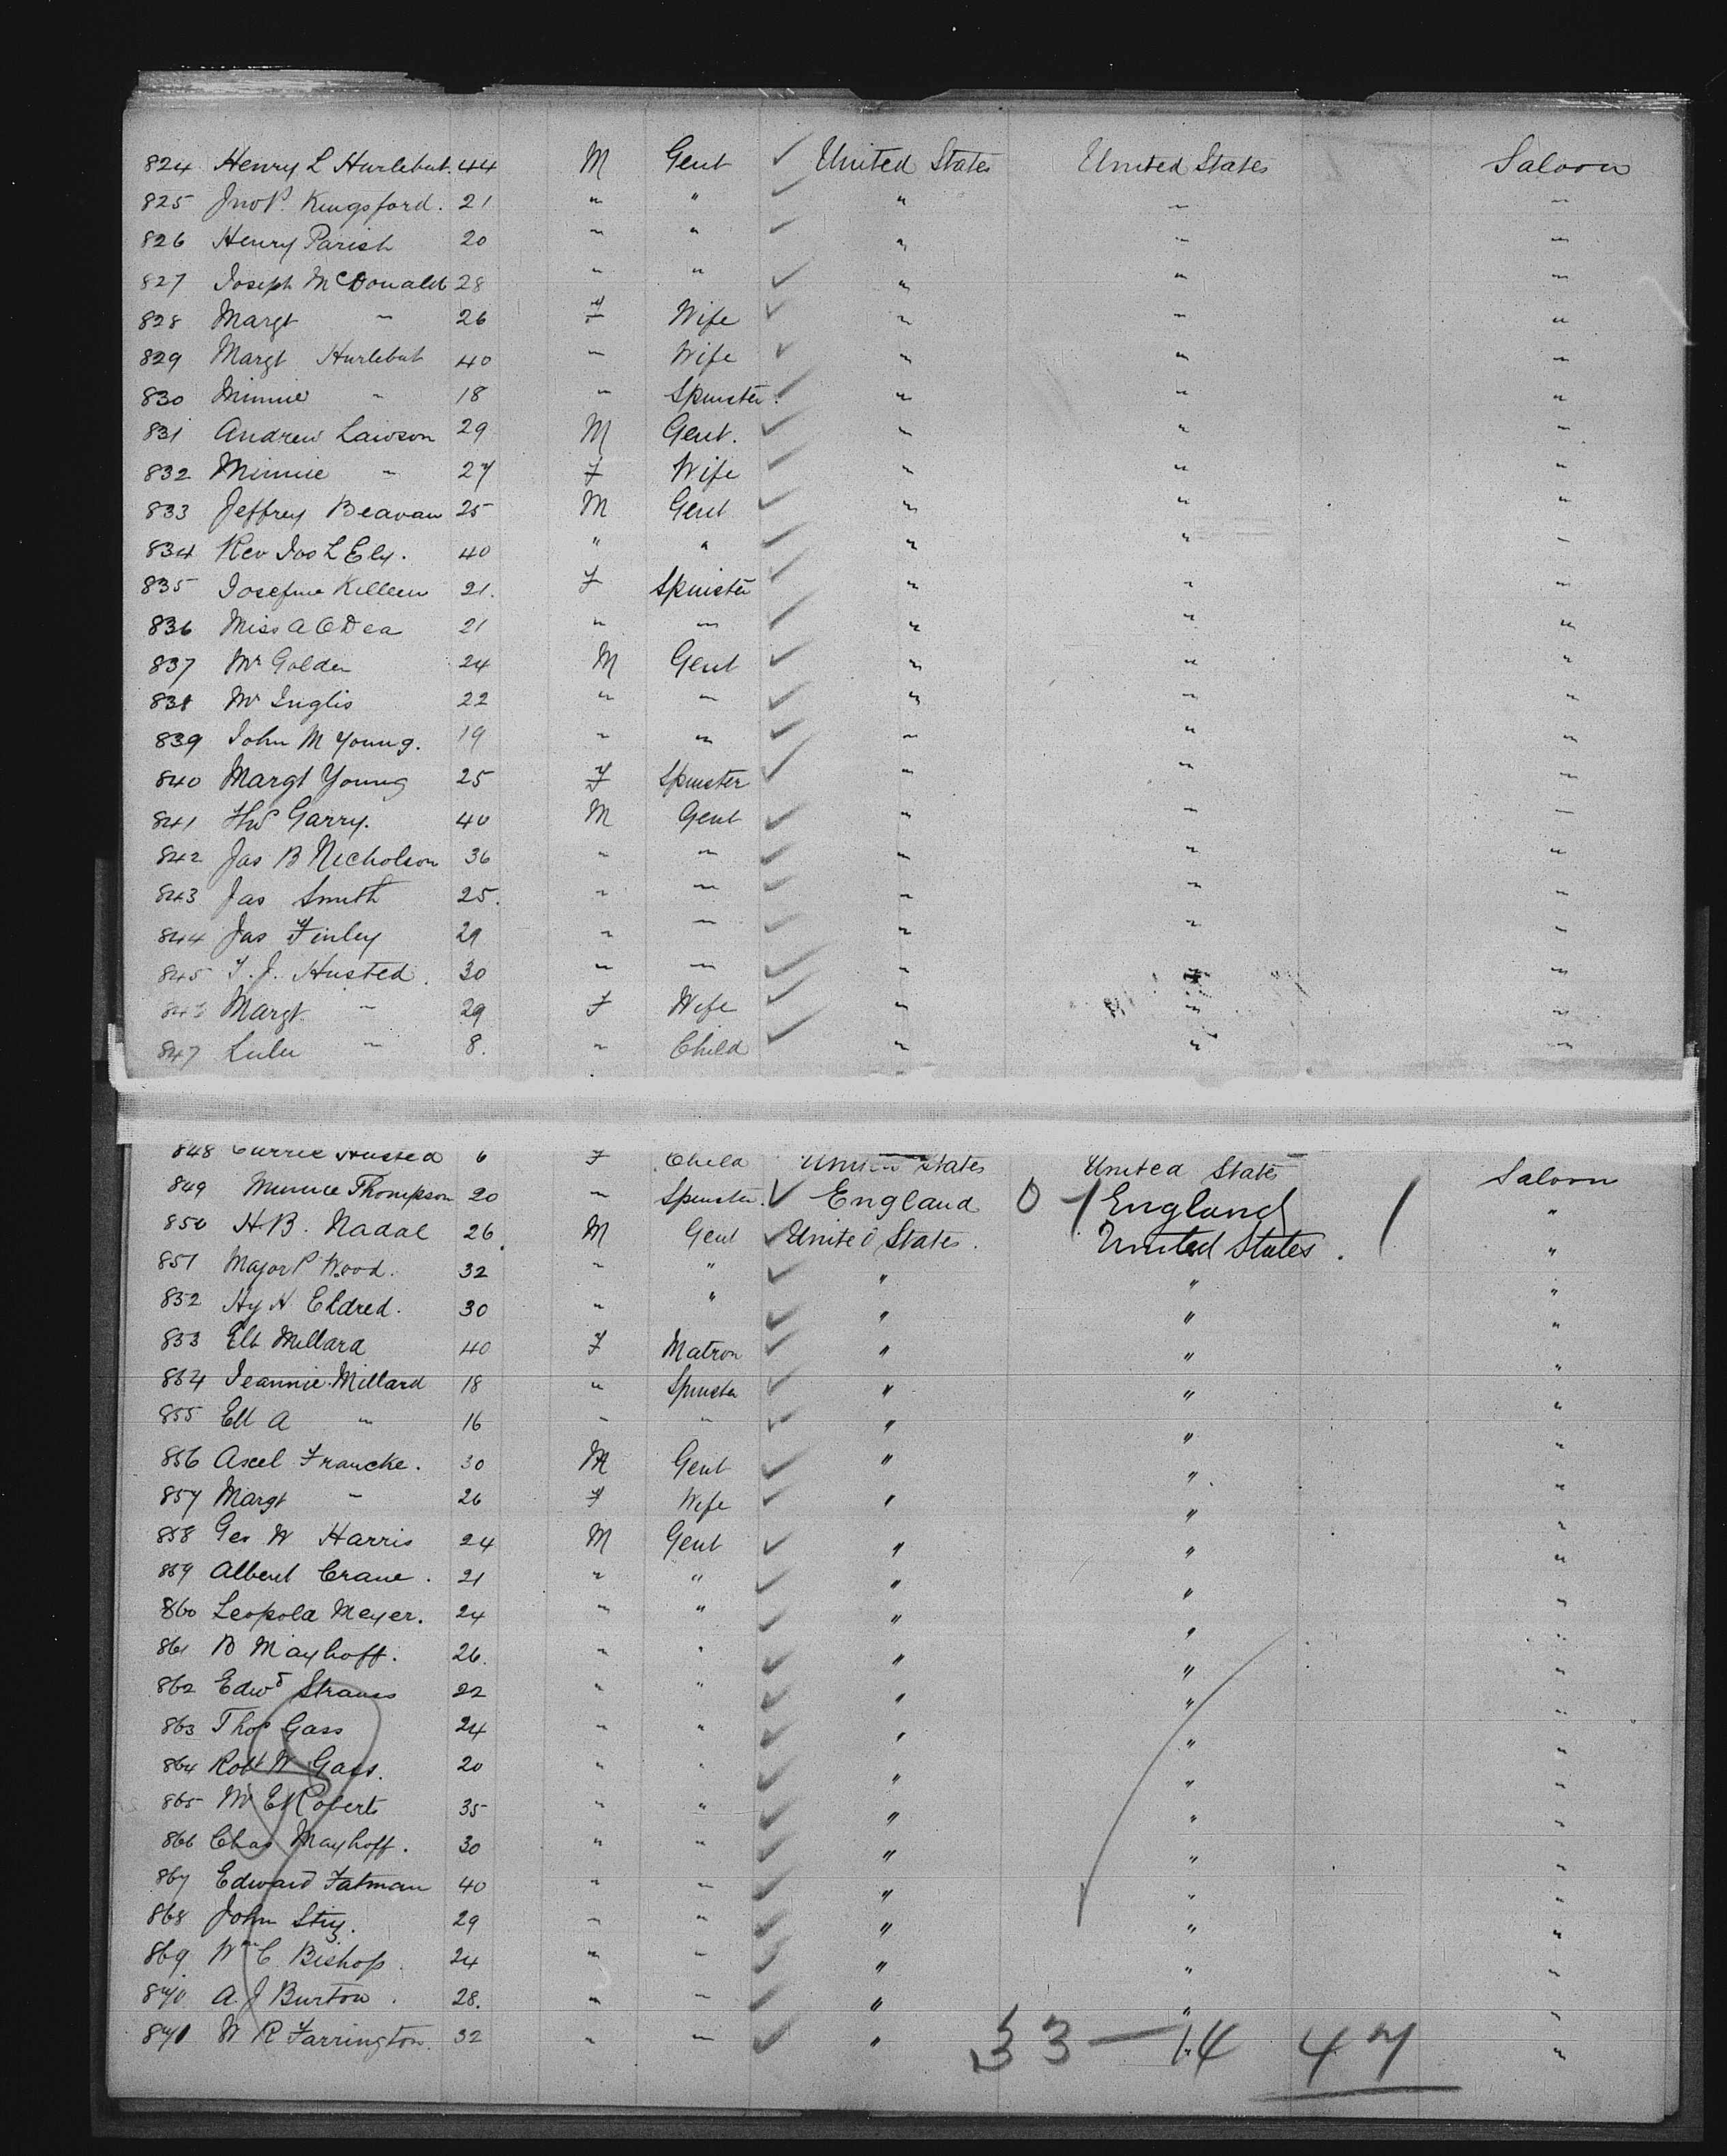 824 Henry L Hurlebut. 44 M Gent ✓ United States United States Saloon
825 Jno P. Kingsford. 21 " " ✓ " " "
826 Henry Parish 20 " " ✓ " " "
827 Joseph McDonald 28 " " ✓ " " "
828 Margt " 26 F Wife ✓ " " "
829 Margt Hurlebut 40 " Wife ✓ " " "
830 Minnie " 18 " Spinster. ✓ " " "
831 Andrew Lawson 29 M Gent. ✓ " " "
832 Minnie " 27 F Wife ✓ " " "
833 Jeffrey Beavan 25 M Gent ✓ " " "
834 Rev Jos L Ely. 40 " " ✓ " " "
835 Josefine Killeen 21. F Spinster ✓ " " "
836 Miss A ODea 21 " " ✓ " " "
837 Mr Golden 24 M Gent ✓ " " "
838 Mr Inglis 22 " " ✓ " " "
839 John M Young. 19 " " ✓ " " "
840 Margt Young 25 F Spinster ✓ " " "
841 HW Garry. 40 M Gent ✓ " " "
842 Jas B Nicholson 36 " " ✓ " " "
843 Jas Smith 25. " " ✓ " " "
844 Jas Finley 29 " " ✓ " " "
845 T. J. Husted. 30 " " ✓ " " "
846 Margt " 29 F Wife ✓ " " "
847 Lulu " 8. " Child ✓ " " "
848 Currie Husted 6 F Child United States United States Saloon
849 Minnie Thompson 20 " Spinster. ✓ England 0 1 England 1 "
850 H.B. Nadal 26. M Gent ✓ United States. United States. "
851 Major P Wood. 32 " " ✓ " " "
852 Hy H Eldred. 30 " " ✓ " " "
853 Elb Millard 40 F Matron ✓ " " "
854 Jeannie Millard 18 " Spinster ✓ " " "
855 Ell A " 16 " " ✓ " " "
856 Axel Francke. 30 M Gent ✓ " " "
857 Margt " 26 F Wife ✓ " " "
858 Geo W Harris 24 M Gent ✓ " " "
859 Albert Crane. 21 " " ✓ " " "
860 Leopold Meyer. 24 " " ✓ " " "
861 B Mayhoff. 26. " " ✓ " " "
862 Edwd Strauss 22 " " ✓ " " "
863 Thos Gass 24 " " ✓ " " "
864 Robt W Gass. 20 " " ✓ " " "
865 Mr E Roberts 35 " " ✓ " " "
866 Chas Mayhoff. 30 " " ✓ " " "
867 Edward Fatman 40 " " ✓ " " "
868 John 29 " " ✓ " " "
869. Wm C Bishop. 24 " " ✓ " " "
870. A J Burton. 28. " " ✓ " " "
871 W R Farrington. 32 " " ✓ " " "
33 — 14 47